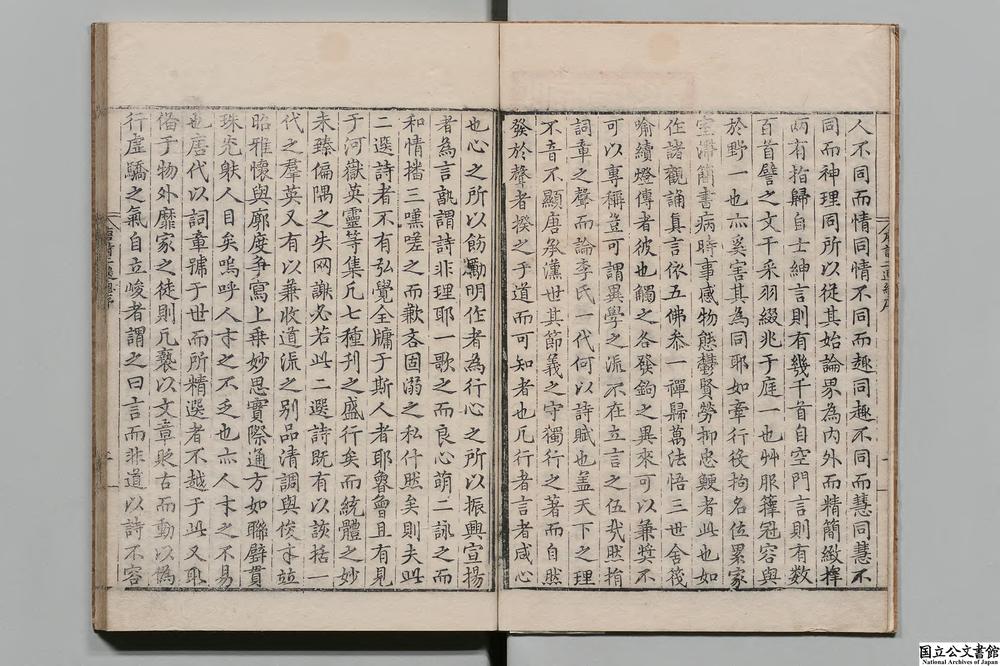 人不同而情同情不同而趣同趣不同而慧同慧不
同而神理同所以從其始論界為内外而精簡緻擇
兩有指歸自士紳言則有幾千首自空門言則有數
百首譬之文干采羽綴兆于庭一也艸服籜冠容與
於野一也亦奚害其為同耶如牽行役拘名位累家
室滯簡書病時事感物態鬱賢勞抑忠鯁者此也如
住諸觀誦真言依五佛叅一禪歸萬法悟三世舍筏
喻續燈傳者彼也觸之各發鉤之異來可以兼奬不
可以專稱豈可謂異學之派不在立言之伍哉然揹
詞章之聲而論李氏一代何以詩賦也盖天下之理
不音不顯唐承漢世其節義之守獨行之著而自然
發於聲者揆之乎道而可知者也凡行者言者咸心
也心之所以飭勵明作者為行心之所以振興宣揚
者為言孰謂詩非理耶一歌之而良心萌二詠之而
和情播三嘆嗟之而歉吝固溺之私什然矣則夫此
二選詩者不有弘覺全牖于斯人者耶魯曾且有見
于河嶽英靈等集凡七種刊之盛行矣而統體之妙
未臻偏隅之失罔謝必若此二選詩既有以該括一
代之羣英又有以兼收道流之别品清調與俊才竝
昭雅懷與廓度爭寫上乗妙思實際通方如聯璧貫
珠究躾人目矣嗚呼人才之不乏也亦人才之不易
也唐代以詞章號于世而所精選者不越于此又耴
偹于物外靡家之徒則凡褻以文章眇古而動以為
行虛驕之氣自立峻者謂之曰言而非道以詩不容
国立公文書館
National Archives of Japan